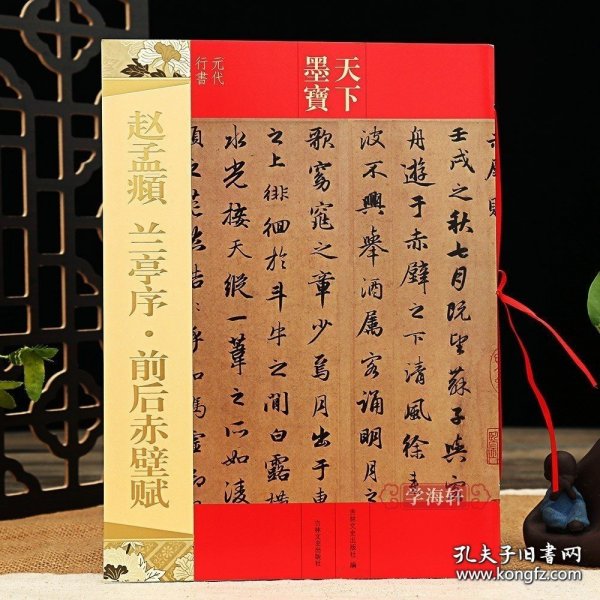 天下
墨寶
元代
行書
赵孟頫 兰亭序·前后赤壁赋
壬戌之秋七月既望蘇子與客
舟遊于赤壁之下清風徐
波不興舉酒属客誦明月之
歌窈窕之章少焉月出于東
之上徘徊於斗牛之間白露横
水光接天縱一葦之所如凌
頃之茫然浩浩乎如馮虚御
吉林文史出版社 编
吉林文史出版社
学海轩
孔夫子旧书网
www.kongfz.com